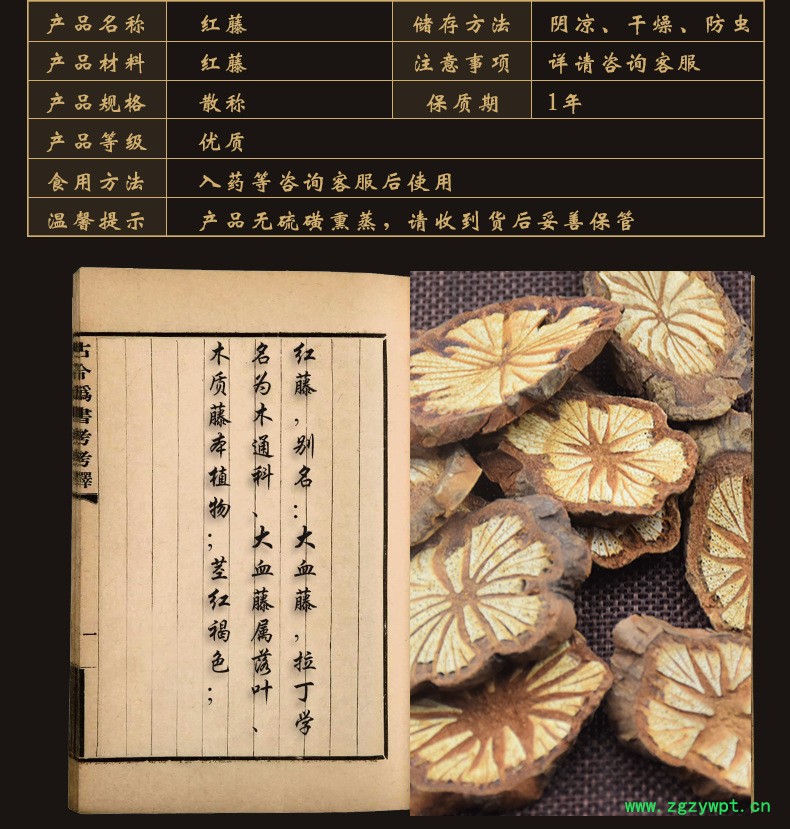 产品名称 红藤 储存方法 阴凉、干燥、防虫
产品材料 红藤 注意事项 详请咨询客服
产品规格 散称 保质期 1年
产品等级 优质
食用方法 入药等咨询客服后使用
温馨提示 产品无硫磺熏蒸，请收到货后妥善保管
红藤，别名：大血藤，拉丁学
名为木通科、大血藤属落叶、
木质藤本植物；茎红褐色；
一
www.zgzywpt.cn